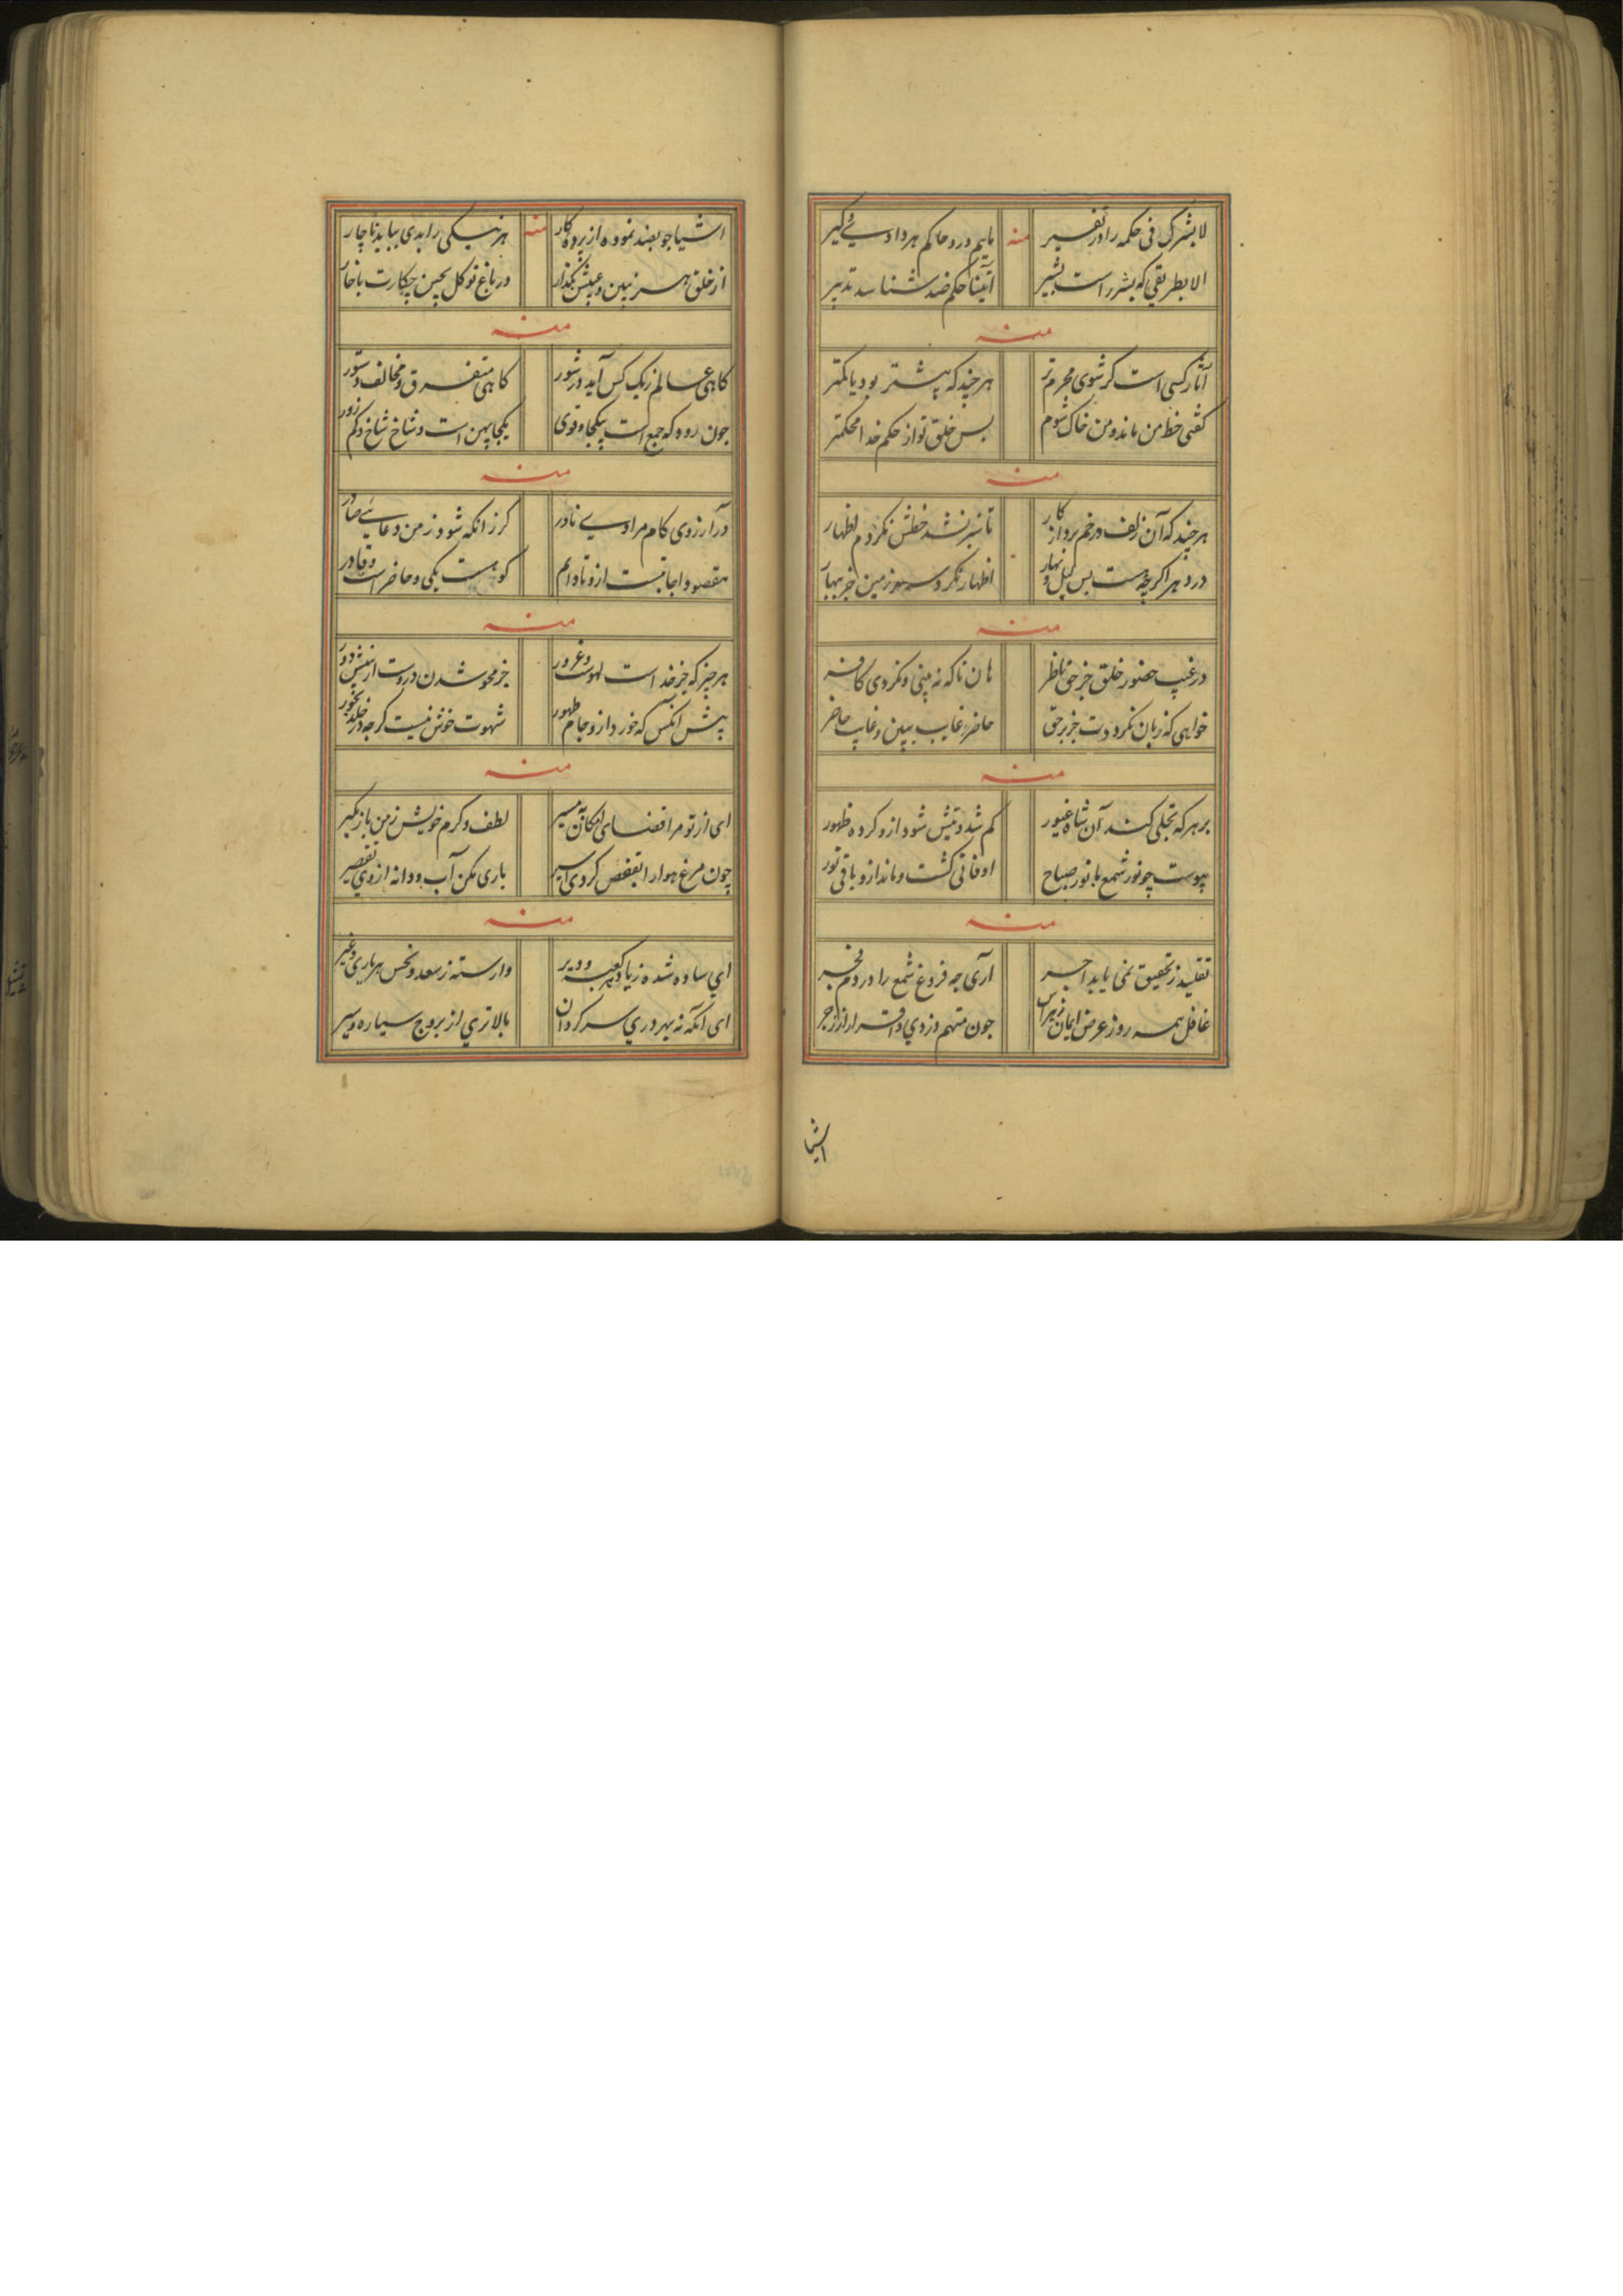 لا یشرک فی حکمه را در تفسیر منه یابیم در و حاکم هر داد و کیر
الا بطریقی که بشیر راست بشیر آنینا حکم ضد شناسد تدبیر
منه
آثار کسی است کر شوی محرم تر هر چند که پیشتر بود یا کمتر
کفتی خط من ماند و من خاک شوم بس خلق تو از حکم خدا محکمتر
منه
هر چند که آن زلف و رخم برد از کار تا سبز نشد خطش نکردم اظهار
در دهر اکر چه هست بس لیل و نهار اظهار نکرد سر زمین جز بهار
منه
در غیب حضور خلق جز حق ناظر هان تا که نه بینی و نکردی کافر
خواهی که زیان نکرددت جز بر حق حاضر غایب ببین و غایب حاضر
منه
بر هر که تجلی کند آن شاه غیور کم شد و تیش شود ازو کرده ظهور
پیوست چو نور شمع با نور صباح او فانی کشت و ماند ازو باقی نور
منه
تقلید ز تحقیق نمی یابد اجر آری چه فروغ شمع را در دم فجر
غافل همه روز عرض ایمان ز هراس چون متهم دزدی و اقرار از زجر
اشیا
اشیا جو بضد نموده از پرده کار منه هر نیکی را بدی بباید ناچار
از خلق هنر ببین و عیبش بکذار در باغ تو کل بچین چکارت با خار
منه
کاهی عالم ز یک کس آید در شور کاهی متفرق و مخالف دستور
جون روده که جمع است بیکجا و قوی یکجا پهن است و شاخ شاخ و کم زور
منه
در آرزوی کام مرادی نادر کر زانکه شود ز من دعایی صادر
مقصود اجابتست ازو تا دانم کو هست یکی و حاضر است و قادر
منه
هر چیز که جز خداست لهوست و غرور جز محو شدن دروست از بینش دور
پیش آنکس که خورد ازو جام طهور شهوت خوش نیست کرچه در خلد بحور
منه
ای از تو مرا فضای امکان مسیر لطف و کرم خویش ز من باز مکیر
چون مرغ هوا را بقفص کردی اسیر باری مکن آب و دانه از وی تقصیر
منه
ای ساده شده ز یاد کعبه و دیر وارسته ز سعد و نحس هر یاری و غیر
ای آنکه نه بهر وری سرکردان بالاتری از بروج سیاره و سیر